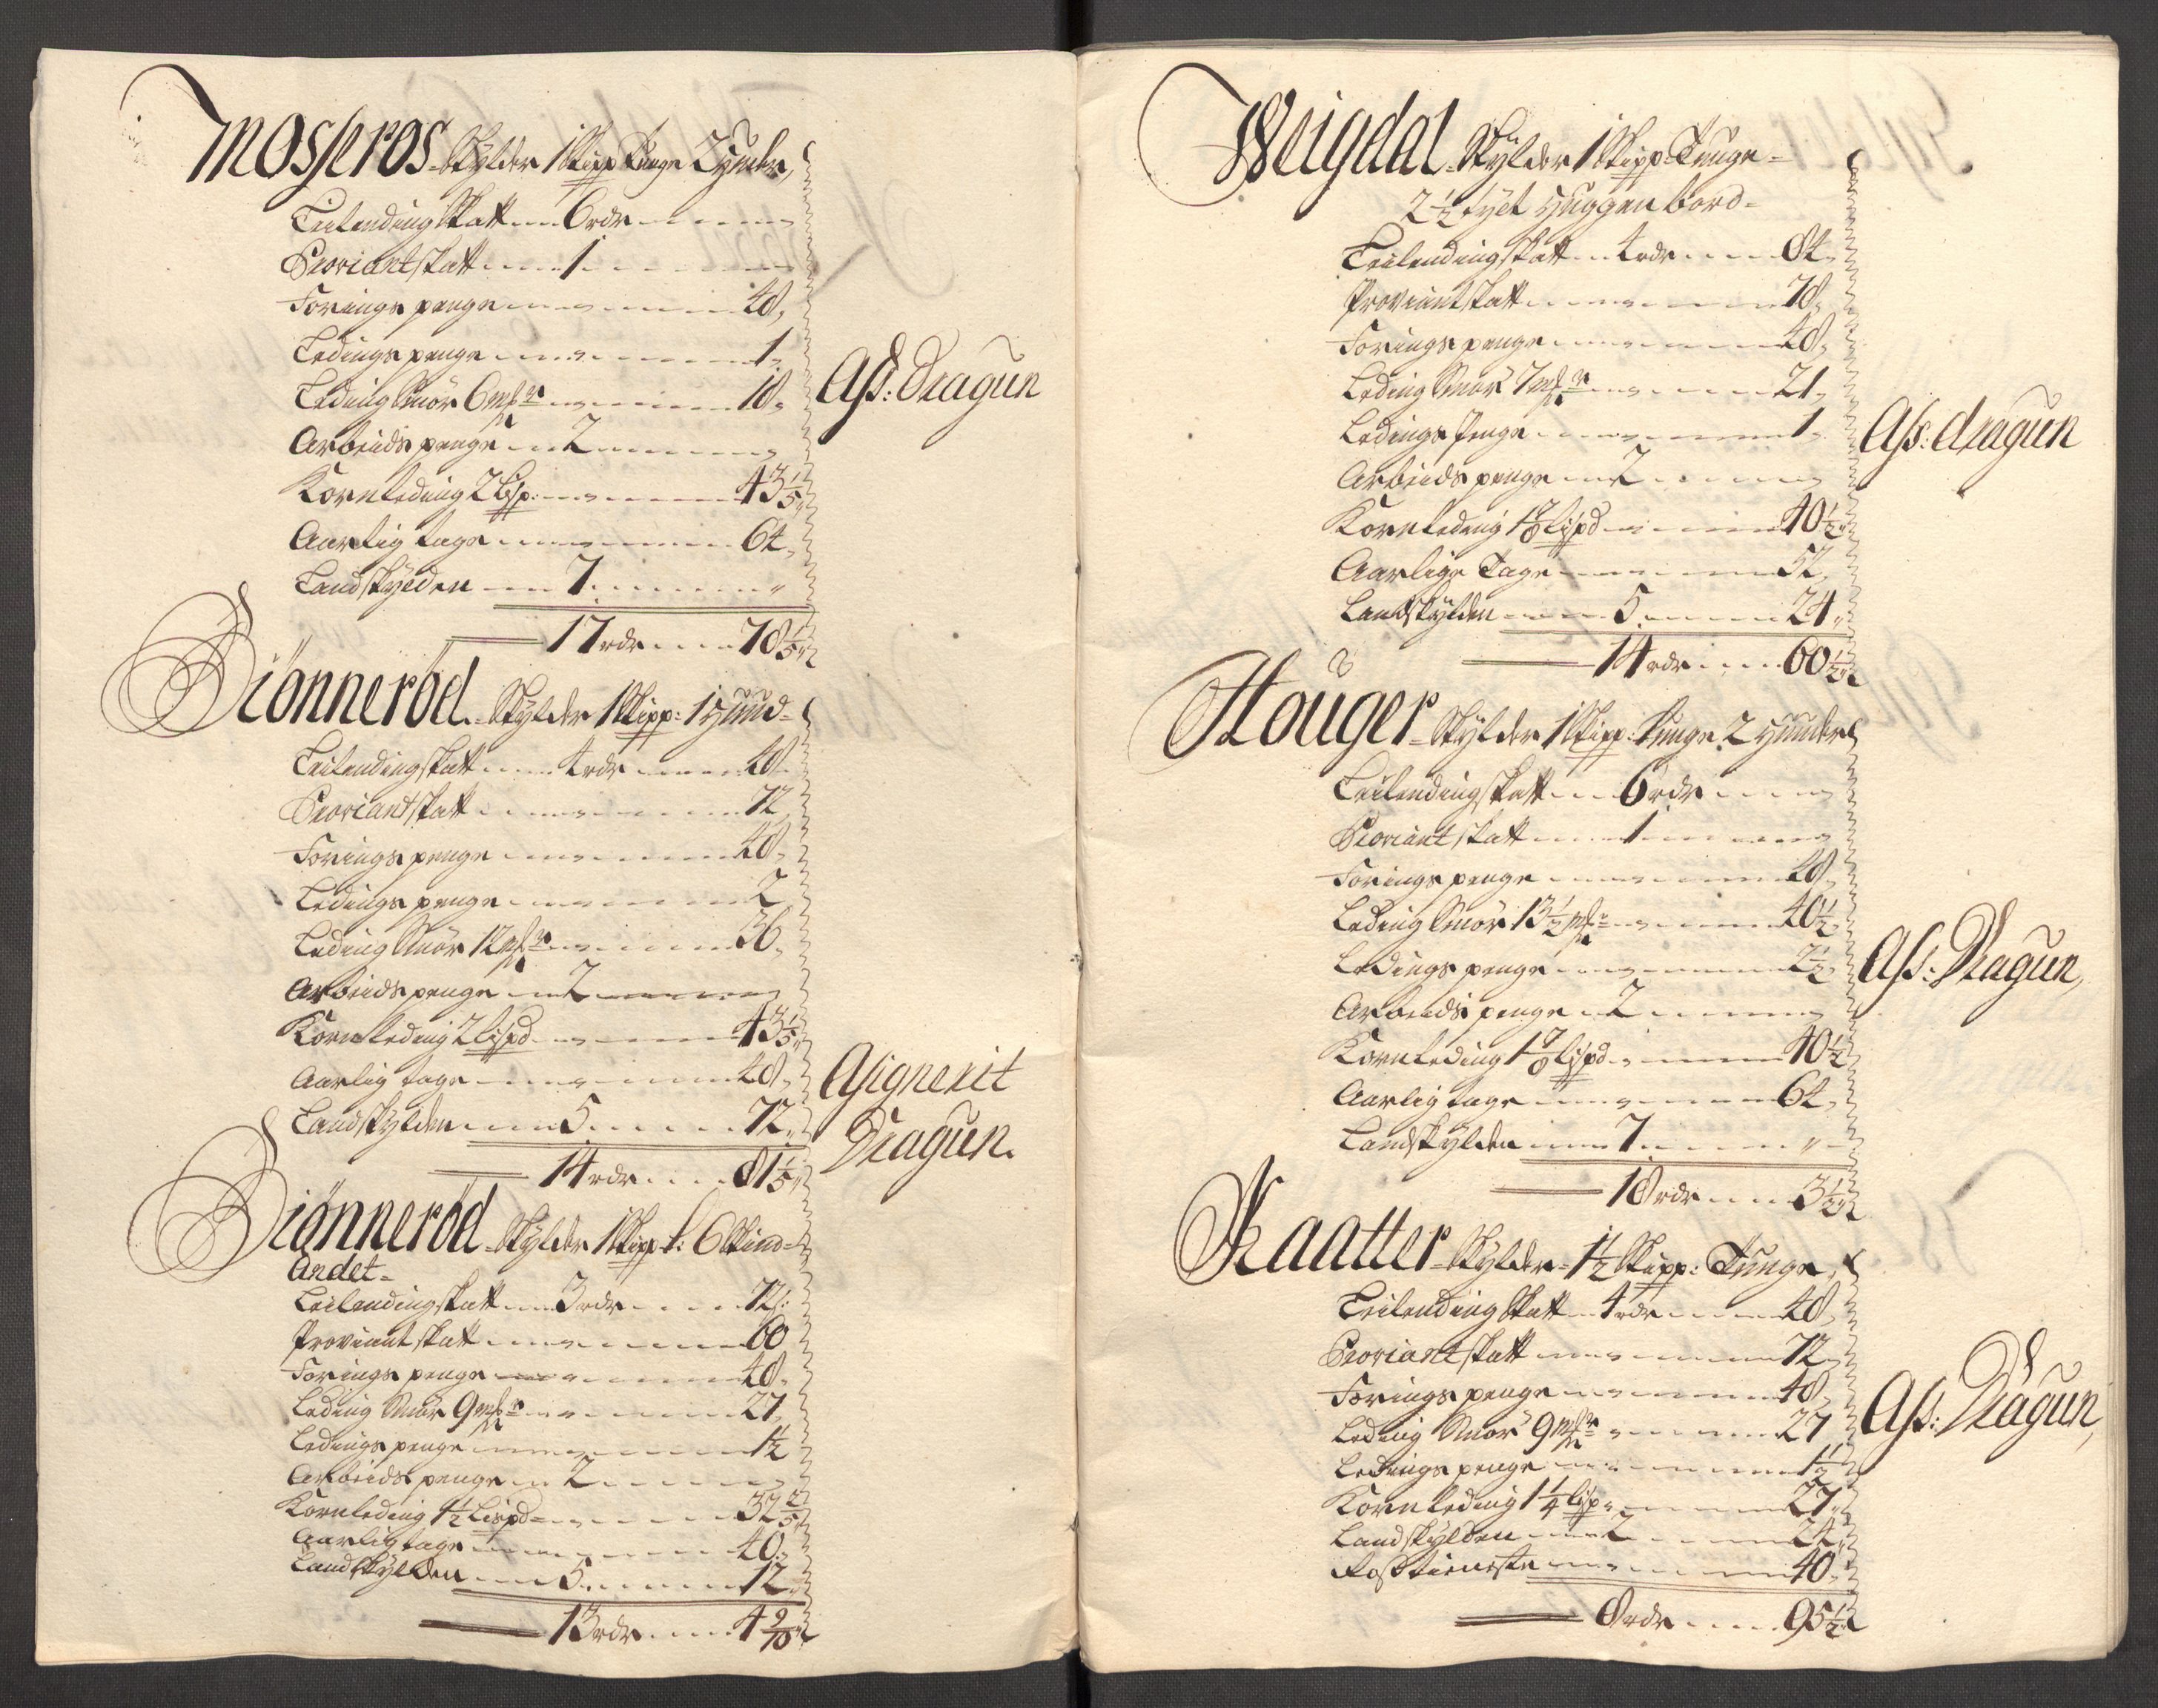 Mosseros Skylder 1 Skipp Tunge 2 Hunder,
Leilending Skatt 6 rdr
Proviant skatt 1
Forings penge 48,
Ledings penge 1
Leding Smör 6 mkr 18
Arbeids penge 2
Kornleding 2 Lisp: 43 1/5
Aarlig tage 64
Landskylden 7 "
17 rdr 78 1/5
Ass: Dragun
Biönneröd Skylder 1 Skipp: 1 Hund
Leilending skatt 4 rdr 48
Proviant skatt 72
Forings penge 48
Ledings penge 2
Leding Smör 12 mkr 36
Arbeids penge 2
Kornleding 2 Lispd 43 1/5
Aarlig tage 48
Landskylden 5 72
14 rdr 81 1/5
Asignerit
Dragun.
Biönneröd Skylder 1 Skipp t: 6 Skind
Andet
Leilending skatt 3 rdr 72
Proviant skatt 60
Forings penge 48
Leding Smör 9 mkr 27
Ledings penge 1 1/2
Arbeids penge 2
Kornleding 1 1/2 Lispd 32 2/5
Aarlig tage 40
Landskylden 5 12
13 rdr 4 9/10
Weigdal Skylder 1 Skipp Tunge
2 1/2 tylt Huggen bord
Leilending skatt 4 rdr 84
Proviant skatt 78
Forings penge 48
Leding Smör 7 mkr 21
Ledings Penge 1
Arbeids penge 2
Kornleding 1 7/8 Lispd 40 1/2
Aarlige Tage 52
Landskylden 5 24
14 rdr 60 1/2
Ass: dragun
Houger Skylder 1 Skipp: Tunge 2 Hunder
Leilending skatt 6 rdr
Proviant skatt 1
Forings penge 48
Leding Smör 13 1/2 mkr 40 1/2
Ledings penge 2 1/2
Arbeids penge 2
Kornleding 1 7/8 Lispd 40 1/2
Aarlig tage 64
Landskylden 7 "
18 rdr 3 1/2
Ass: Dragun,
Kaatter Skylder 1 1/2 Skipp: Tunge,
Leilending Skatt 4 rdr 48
Proviant skatt 72
Forings penge 48
Leding Smör 9 mkr 27
Ledings penge 1 1/2
Kornleding 1 1/4 Lisp 27
Landskylden 2 24
Rosstieneste 40
8 rdr 95 1/2
Ass: Dragun,